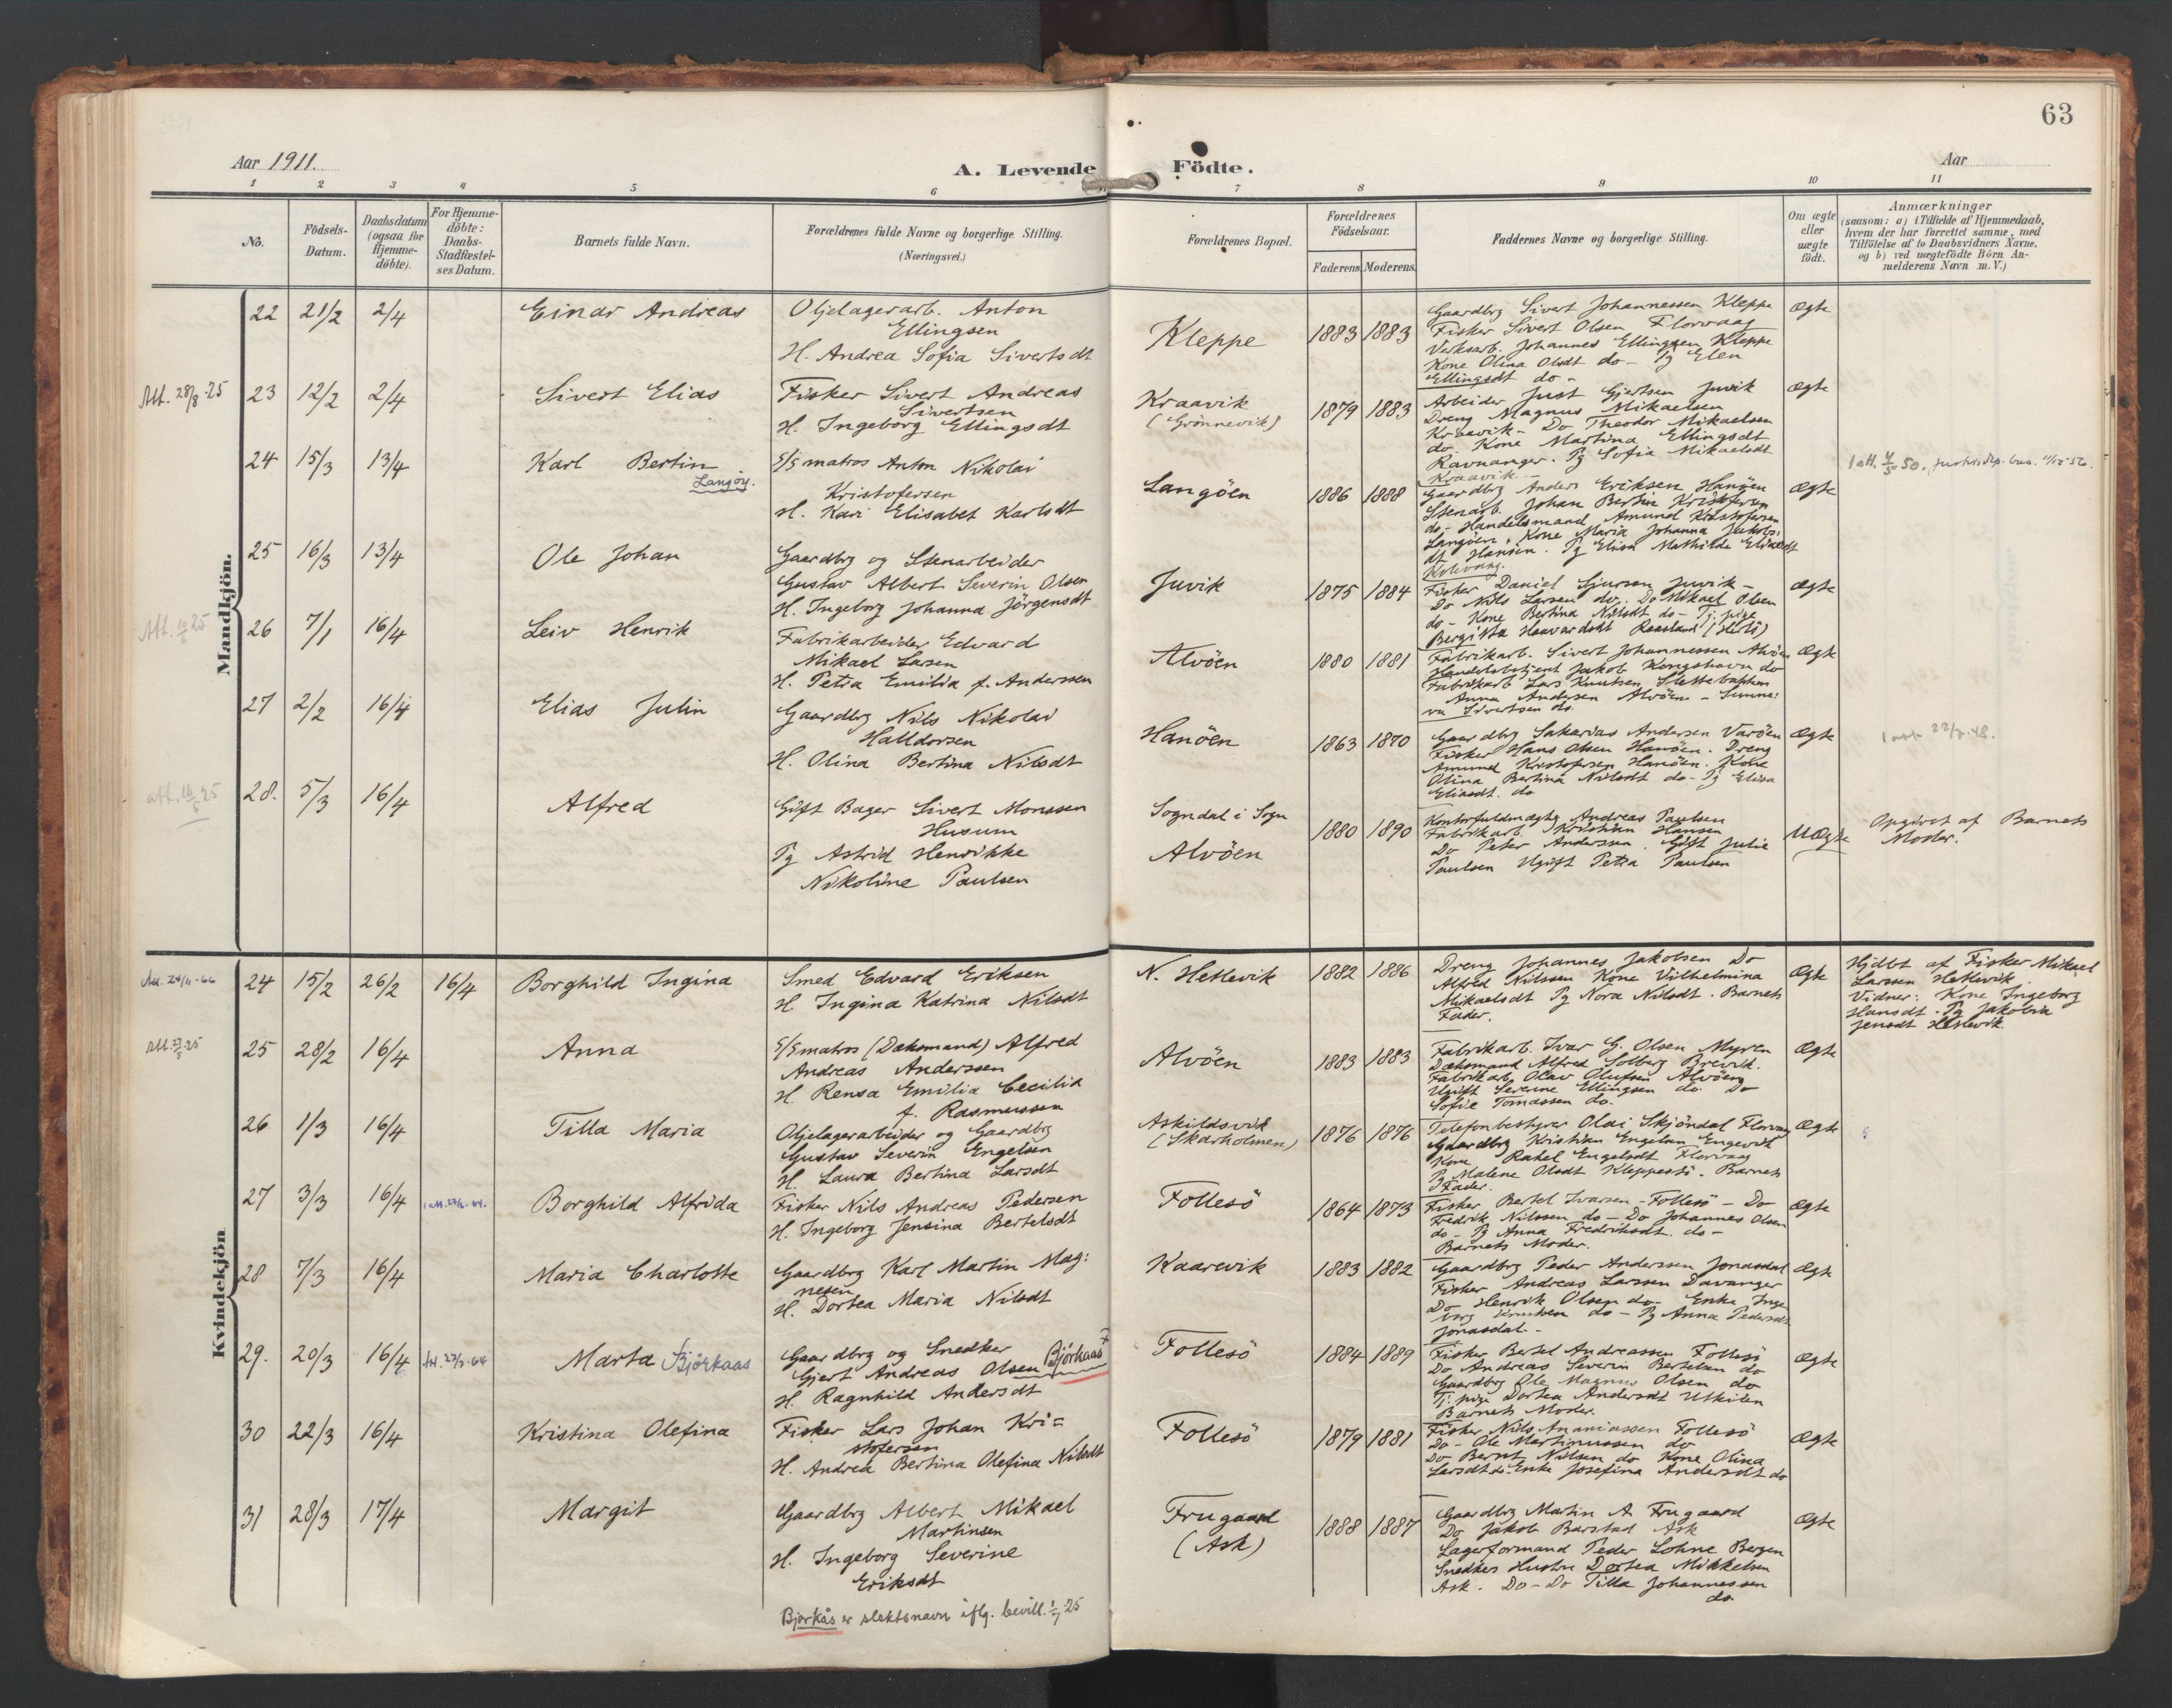 63
Aar 1911.
A. Levende Födte.
Aar
1 2 3 4 5 6 7 8 9 10 11
No.
Födsels-
Datum.
Daabsdatum
(ogsaa for
Hjemme-
döbte).
For Hjemme-
döbte:
Daabs-
Stadfæstel-
ses Datum.
Barnets fulde Navn.
Forældrenes fulde Navne og borgerlige Stilling.
(Næringsvei.)
Forældrenes Bopæl.
Forældrenes
Födselsaar.
Faderens. Moderens.
Faddernes Navne og borgerlige Stilling.
Om ægte
eller
uægte
födt.
Anmærkninger
(saasom: a) i Tilfælde af Hjemmedaab,
hvem der har forrettet samme, med
Tilföielse af to Daabsvidners Navne.
og b) ved uægtefödte Börn An-
melderens Navn m. V.)
Mandkjön.
22 21/2 2/4 Einar Andreas
Oljelagerarb. Anton
Ellingsen
H. Andrea Sofia Sivertsdt
Kleppe 1883 1883
Gaardbrg Sivert Johannessen Kleppe
Fisker Sivert Olsen Florvaag
Verksarb. Johannes Ellingsen Kleppe
Kone Olina Olsdt do - Pg Elen
Ellingsdt do -
Ægte
Att. 28/8-25
23 12/2 2/4 Sivert Elias
Fisker Sivert Andreas
Sivertsen
H. Ingeborg Ellingsdt
Kraavik
(Grönnevik)
1879 1883
Arbeider Just Gjertsen Juvik
Dreng Magnus Mikaelsen
Kraavik - Do Theodor Mikaelsen
do. Kone Martina Ellingsdt
Ravnanger. Pg Sofia Mikaelsdt
Kraavik
Ægte
24 15/3 13/4 Karl Bertin
Langöy.
S/S matros Anton Nikolai
Kristofersen
H. Kari Elisabet Karlsdt
Langöen 1886 1888
Gaardbrg Anders Eriksen Hanöen
Stenarb. Johan Bertin Kristofersen
do - Handelsmand Amund Kristofersen
Langöen. Kone Maria Johanna Jakobs:
dt Hanöen. Pg Elisa Mathilde
Ægte
25 16/3 13/4 Ole Johan
Gaardbrg og Stenarbeider
Gustav Albert Severin Olsen
H. Ingeborg Johanna Jörgensdt
Juvik 1875 1884
Fisker Daniel Sjursen Juvik -
Do Nils Larsen do. Do Mikael Olsen
do - Kone Bertina Nilsdt do - Tj. pige
Bergitta Haavardsdt
Ægte
26 7/1 16/4 Leiv Henrik
Fabrikarbeider Edvard
Mikael Larsen
H. Petra Emilia f. Anderssen
Alvöen 1880 1881
Fabrikarb. Sivert Johannessen Alvöen
Handelsbetjent Jakob Kongshavn do
Fabrikarb Lars Knutsen Slettebakken
Anna Andersen Alvöen - Sunne:
va Sivertsen do.
Ægte
27 2/2 16/4 Elias Julin
Gaardbrg Nils Nikolai
Halldorsen
H. Olina Bertina Nilsdt
Hanöen 1863 1870
Gaardbrg Sakarias Andersen Varöen
Fisker Hans Olsen Hanöen. Dreng
Amund Kristofersen Hanöen. Kone
Olina Bertina Nilsdt do - Pg Elisa
Eliasdt. do
Ægte
28. 5/3 16/4 Alfred
Gift Bager Sivert Monssen
Husum
Pg Astrid Henrikke
Nikoline Paulsen
Sogndal i Sogn
Alvöen
1880 1890
Kontorfuldmægtig Andreas Paulsen
Fabrikarb. Kristian Hansen
Do Peter Anderssen. Gift Julie
Paulsen Ugift Petra Paulsen
Uægte
Opgivet af Barnets
Moder.
Kvindekjön
24 15/2 26/2 16/4 Borghild Ingina
Smed Edvard Eriksen
H Ingina Katrina Nilsdt
N. Hetlevik 1882 1886
Dreng Johannes Jakobsen Do
Alfred Nilssen Kone Vilhelmina
Mikaelsdt Pg Nora Nilsdt. Barnets
Fader.
Ægte
Hjdbt af Fisker Mikael
Larssen Hetlevik
Vidner: Kone Ingeborg
Hansdt. Pg Jakobia
Jensdt Hetlevik
25 28/2 16/4 Anna
S/S matros (Dæksmand) Alfred
Andreas Anderssen
H. Rensa Emilia Cecilia
f. Rasmussen
Alvöen 1883 1883
Fabrikarb. Ivar G. Olsen Myren
Dæksmand Alfred Solberg Brevik.
Fabrikarb Olav Olufsen Alvöen
Ugift Severine Ellingsen do. Do
Sofie Tomassen do.
Ægte
26 1/3 16/4 Tilla Maria
Oljelagerarbeider og Gaardbrg
Gustav Severin Engelsen
H. Laura Bertina Larsdt
Askildsvik
(Skarholmen)
1876 1876
Telefonbestyrer Olai Skjöndal Florvaag
Gaardbrg Kristian Engelsen Engevik
Kone Rakel Engelsdt Florvaag
Pg Malene Olsdt Kleppestö. Barnets
Fader.
Ægte
27 3/3 16/4 Borghild Alfrida
Fisker Nils Andreas Pedersen
H. Ingeborg Jensina Bertelsdt
Follesö 1864 1873
Fisker Bertel Ivarsen - Follesö - Do
Fredrik Nilssen do - Do Johannes Olsen
do - Pg Anna Fredriksdt. do -
Barnets Moder.
Ægte
28 7/3 16/4 Maria Charlotte
Gaardbrg Karl Martin Mag:
nesen
H. Dortea Maria Nilsdt
Kaarevik 1883 1882
Gaardbrg Peder Anderssen Jonasdal
Fisker Andreas Larssen Davanger
Do Henrik Olsen do - Enke Inge
borg Knutsen do - Pg Anna Pedersdt
Jonasdal. -
Ægte
29. 20/3 16/4 Marta Björkaas
Gaardbrg og Snedker
Gjert Andreas Olsen Björkaas
H. Ragnhild Andersdt
Follesö 1884 1889
Fisker Bertel Andreassen Follesö
Do Andreas Severin Bertelsen do
Gaardbrg Ole Magnus Olsen do
Tj. pige Dortea Andersdt Utkilen
Barnets Moder.
Ægte
30 22/3 16/4 Kristina Olefina
Fisker Lars Johan Kri=
stofersen
H. Andrea Bertina Olefina Nilsdt
Follesö 1879 1881
Fisker Nils Ananiassen Follesö
Do - Ole Martinussen do
Do Bernt Nilsen do Kone Olina
Larsdt do Enke Josefina Andersdt do
Ægte
31 28/3 17/4 Margit
Gaardbrg Albert Mikael
Martinsen
H. Ingeborg Severine
Eriksdt
Frugaard
(Ask)
1888 1887
Gaardbrg Martin A Frugaard
Do Jakob Barstad Ask
Lagerformand Peder Lohne Bergen
Snedkers Hustru Dortea Mikkelsen
Ask. Do - Do Tilla Johannessen
do
Ægte
Bjørkås er slektsnavn iflg. bevill. 1/7-25